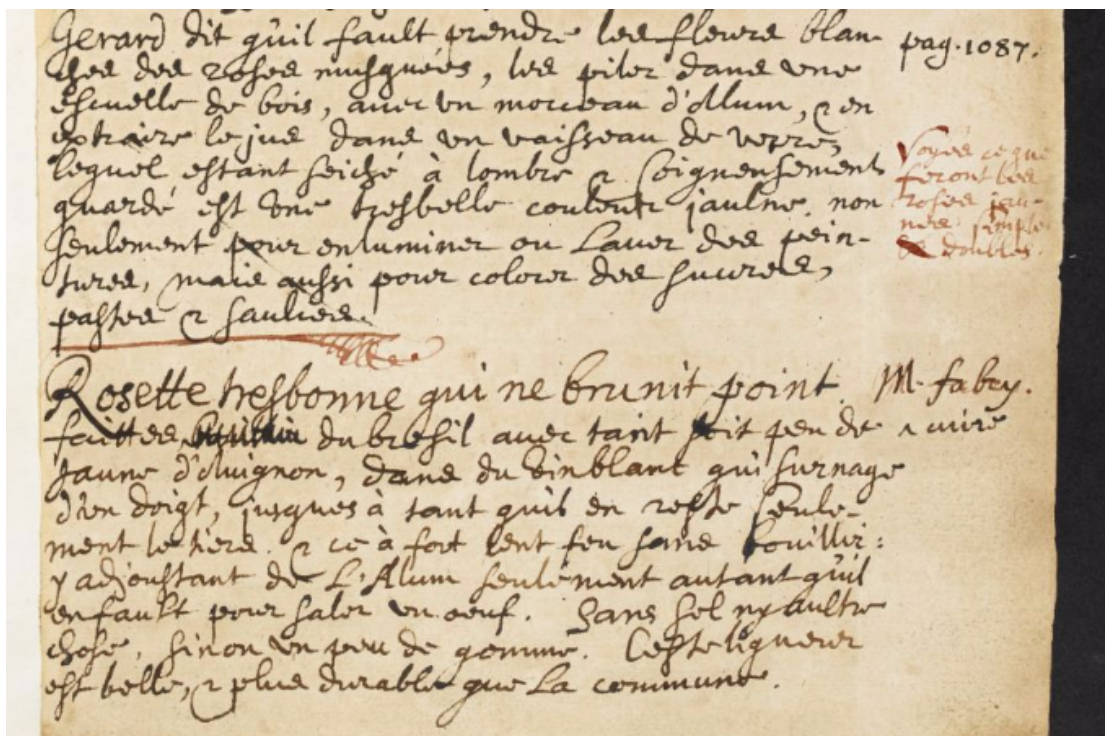 Gerard dit qu'il fault prendre les fleurs blan-
pag. 1087.
ches des roses musquees, les piler dans une
escuelle de bois, avec un morceau d'Allum, & en
extraire le jus dans un vaisseau de verre,
lequel estant seiché à lombre & soigneusement
guardé est une tresbelle couleur jaulne, non
seulement pour enluminer ou Laver des pein-
tures, mais aussi pour colorer des sucres,
pastes & saulses.
Voyes ce que
feront les
roses jau-
nes simples
& doubles.
Rosette tresbonne qui ne brunit point. M. fabry.
faittes du bresil avec tant soit peu de cuire
Jaune d'Avignon, dans du vin blanc qui surnage
d'un doigt, jusques à tant quil en reste seule-
ment le tiers. & ce à fort lent feu sans bouillir:
y adjoustant de L'Alum seulement autant qu'il
en fault pour saler un oeuf. Sans sel ny aultre
chose, sinon un peu de gomme. Ceste liqueur
est belle, & plus durable que La commune.